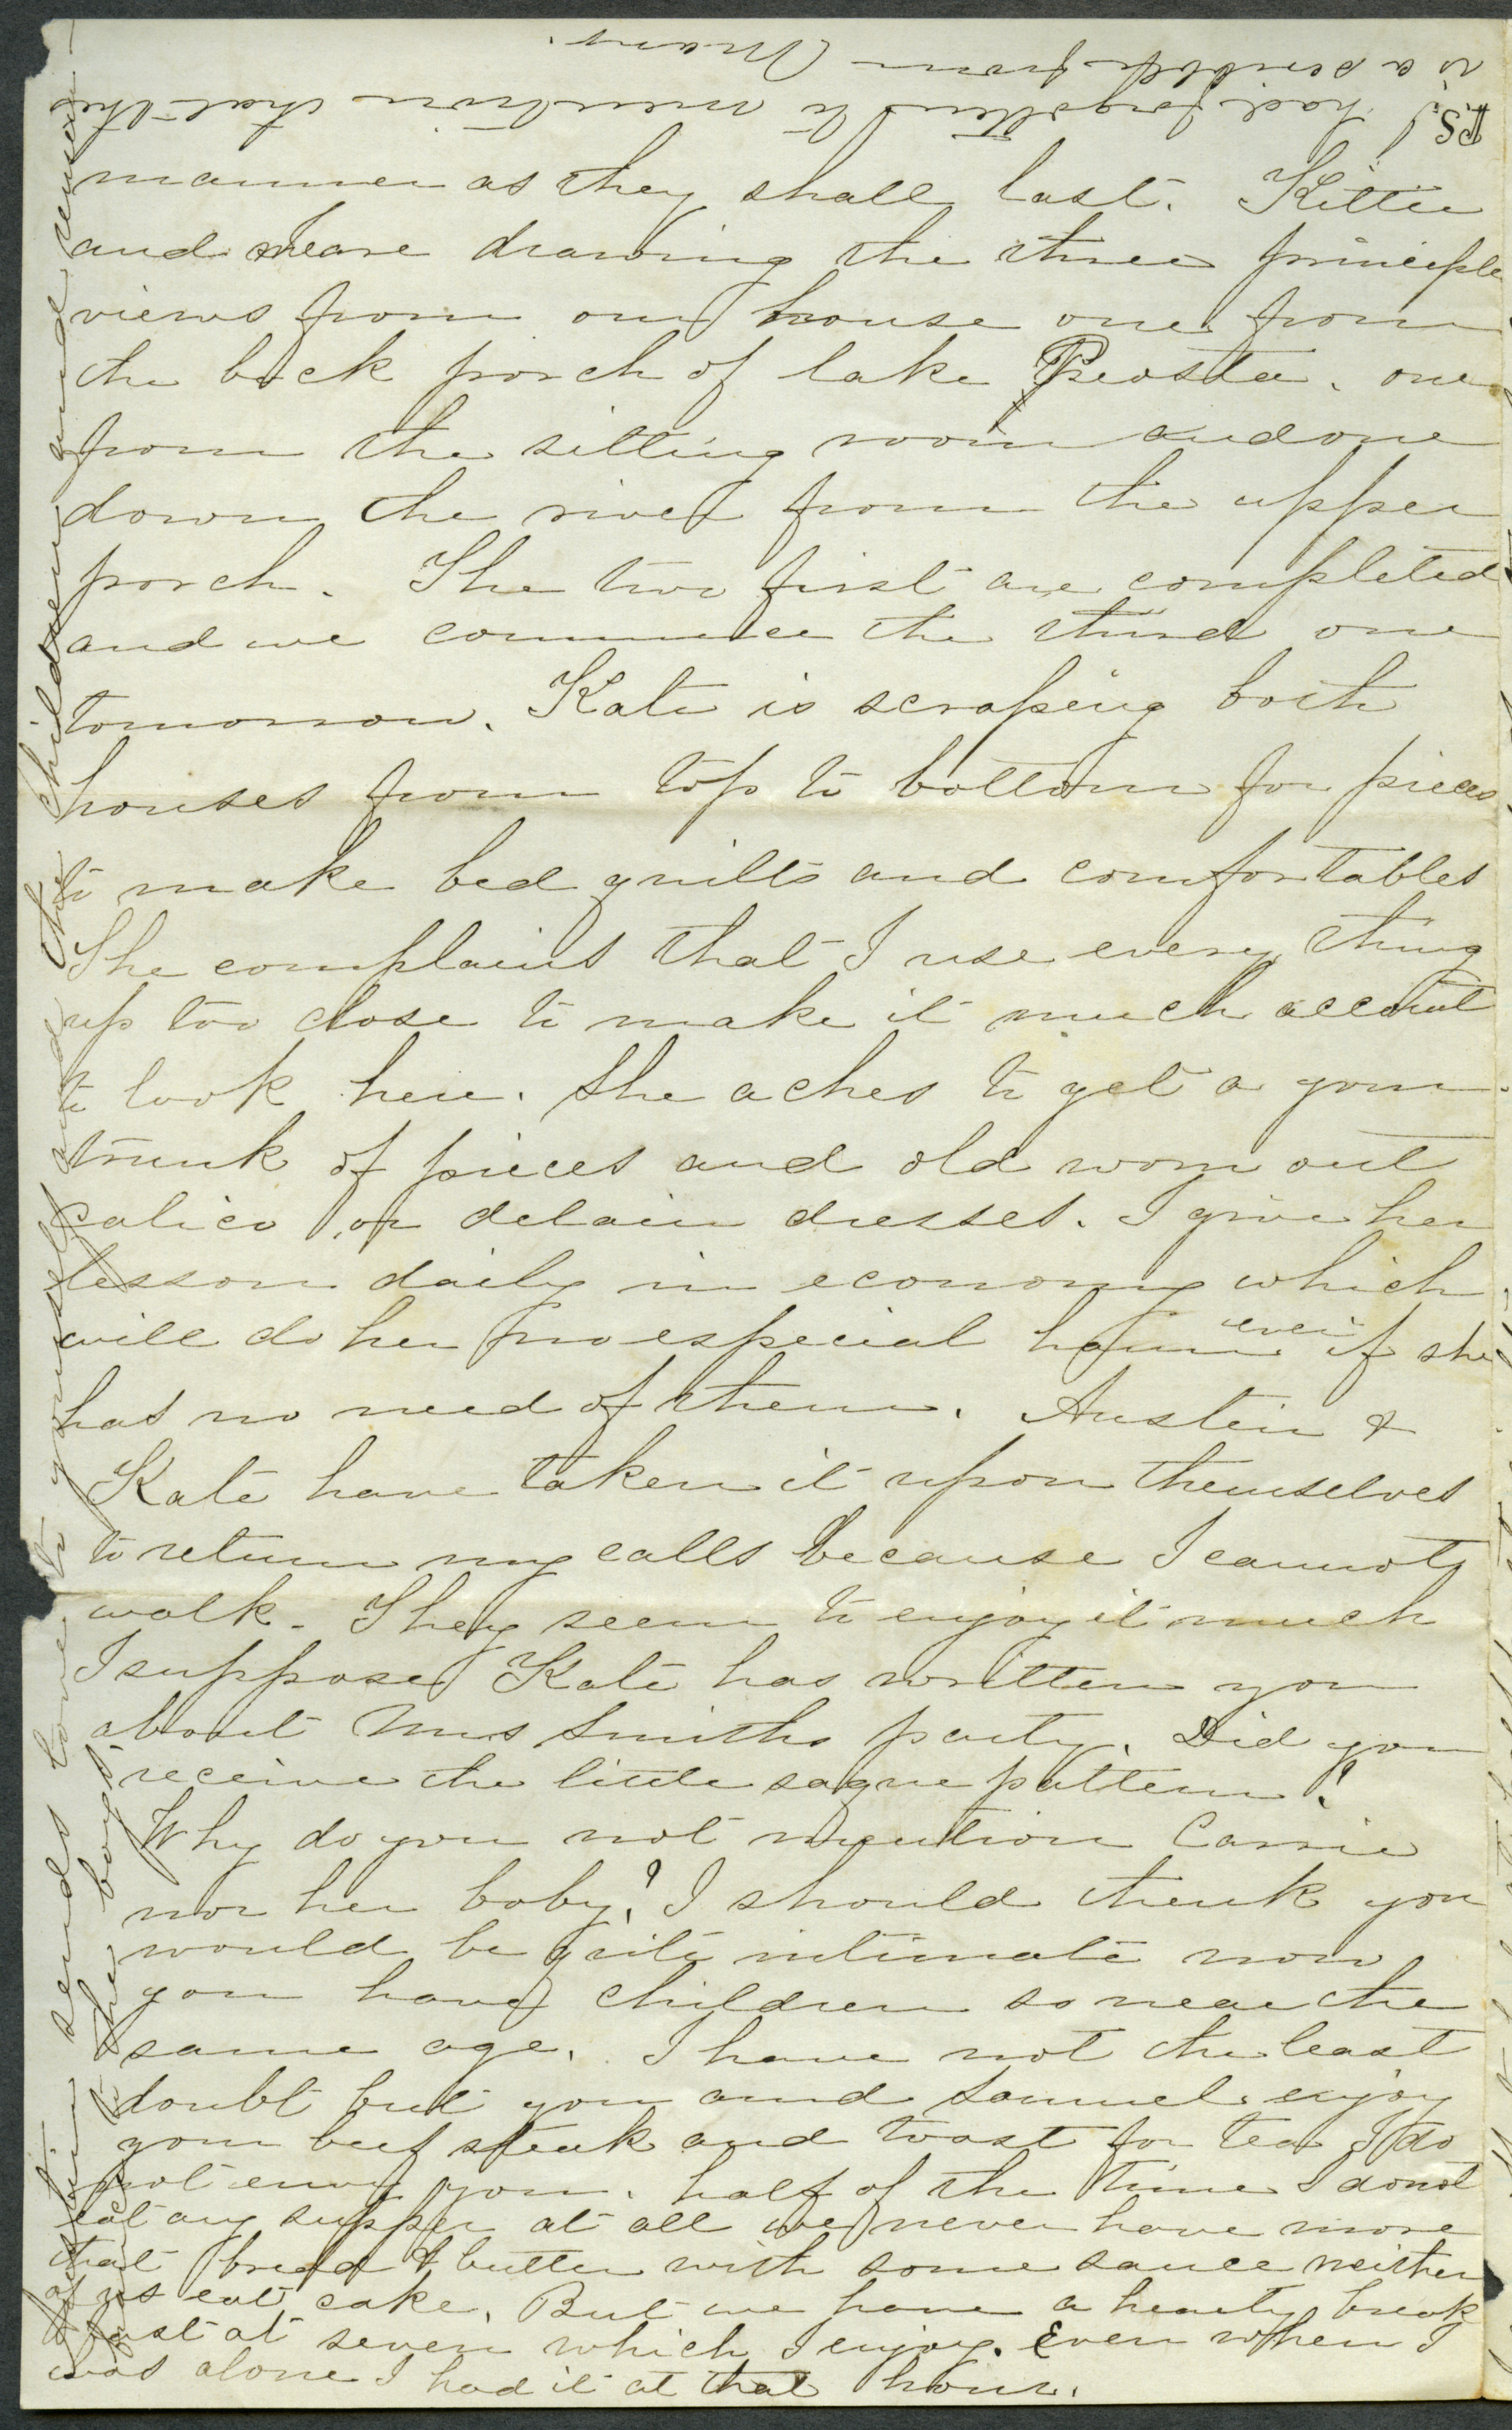 manner as they shall last. Kittie
and I are drawing the three principle
views from our house one from
the back porch of lake Peosta. one
from the sitting room and one
down the river from the upper
porch. The two first are completed
and we commence the third one
tomorrow. Kate is scraping both
houses from top to bottom for pieces
to make bed quilts and comfortables
She complains that I use every thing
up too close to make it much account
to look here. She aches to get a your
trunk of pieces and old worn out
calico or delain dresses. I give her
lesson daily in economy which
will do her no especial harm even if she
has no need of them. Austin &
Kate have taken it upon themselves
to return my calls because I cannot
walk. They seem to enjoy it much
I suppose Kate has written you
about Mrs Smiths party. Did you
receive the little saque pattern?
Why do you not mention Carrie
nor her baby? I should think you
would be quite intimate now
you have children so near the
same age. I have not the least
doubt but you and Samuel enjoy
your beef steak and toast for tea I do
not envy you. half of the time I do not
eat any supper at all we never have more
that bread & butter with some sauce neither
of us eat cake. But we have a hearty break
fast at seven which I enjoy. Even when I
was alone I had it at that hour.
Austin sends love to yourself and the children and
the boys.
PS. I had forgotten to mention that this
is a scribble from Mary.